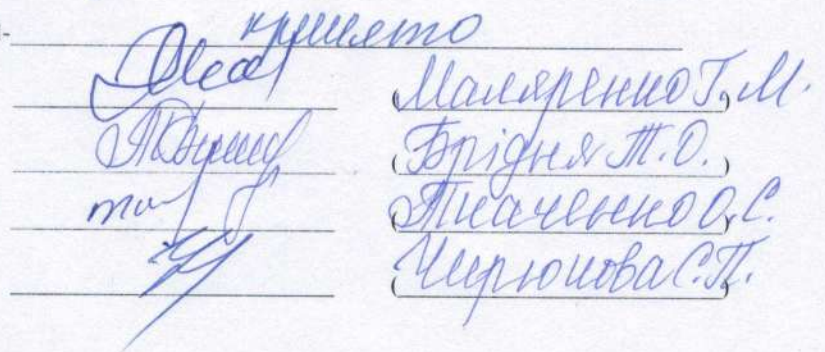 прийнято
(Маляренко Г.М.)
(Брідня Т.О.)
(Ткаченко О.С.)
(Чирюкова С.П.)